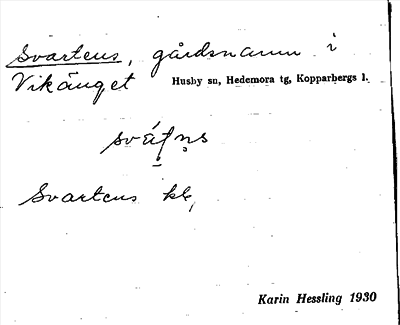 Svartens, gårdsnamn i
Vikänget Husby sn, Hedemora tg, Kopparbergs l.
Svartens kl,
Karin Hessling 1930